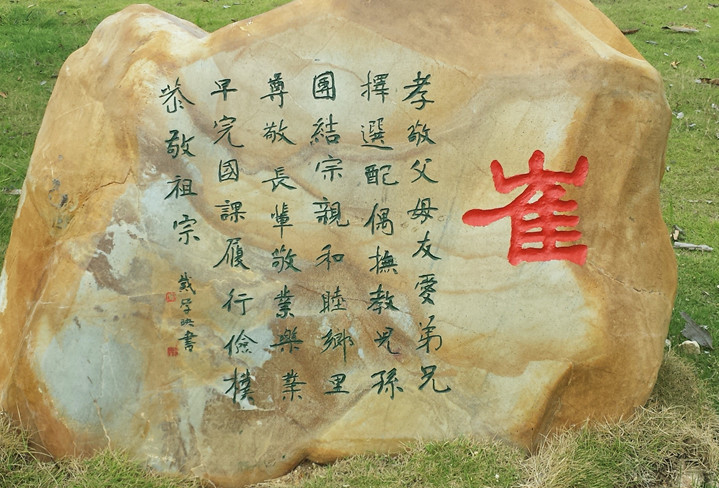 崔
孝敬父母友愛弟兄
擇選配偶撫教兒孫
團結宗親和睦鄉里
尊敬長輩敬業樂業
早完國課履行儉樸
恭敬祖宗
戴學映書